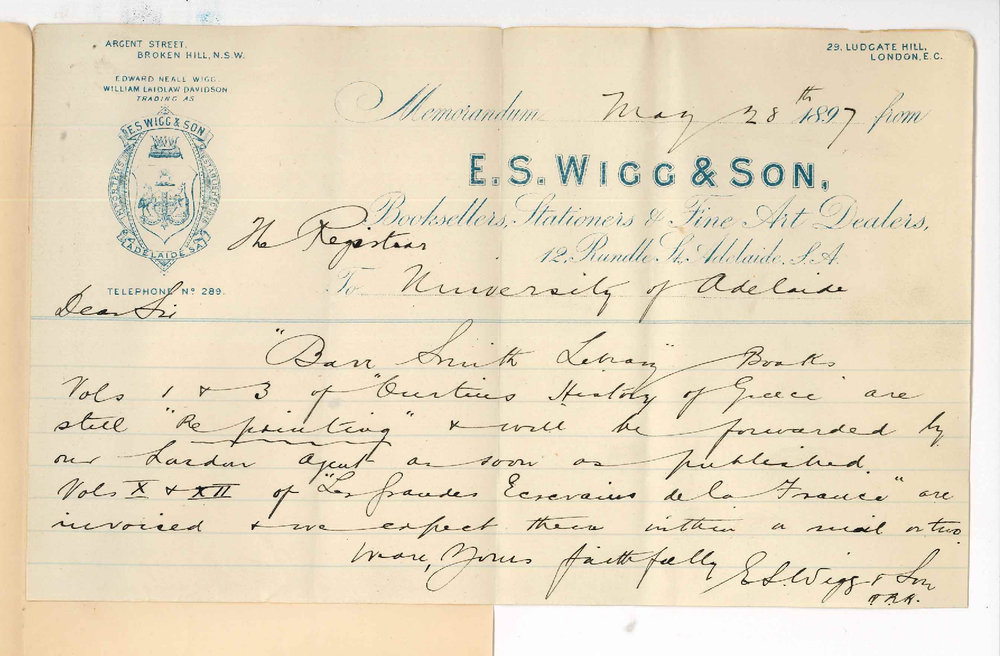 ARGENT STREET,
BROKEN HILL, N.S.W.
29, LUDGATE HILL,
LONDON, E.C.
EDWARD NEALE WIGG
WILLIAM LAIDLAW DAVIDSON
TRADING AS
E.S. WIGG & SON
ADELAIDE S.A.
TELEPHONE No 289.
Memorandum May 28th 1897 from
E. S. WIGG & SON,
Booksellers, Stationers & Fine Art Dealers,
12, Rundle St. Adelaide, S.A.
The Registrar
To University of Adelaide
Dear Sir
"Barr Smith Library" Books
Vols 1 & 3 of "Curtius History of Greece are
still "Reprinting" & will be forwarded by
our London agent as soon as published.
Vols X & XII of "Les Grandes Ecrevains de la France" are
invoised & we expect them within a mail or two
more, Yours faithfully
E. S. Wigg & Son